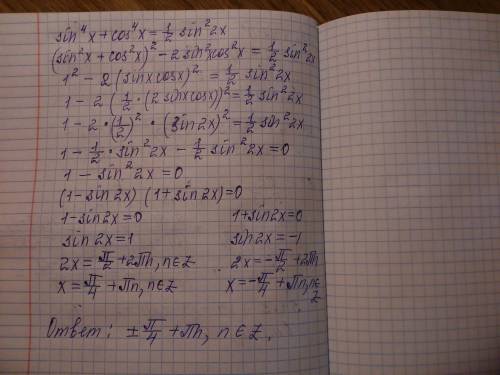 sin⁴x + cos⁴x = 1/2 sin²2x
(sin²x + cos²x)² - 2sin²xcos²x = 1/2 sin²2x
1² - 2(sinxcosx)² = 1/2 sin²2x
1 - 2(1/2 · (2sinxcosx))² = 1/2 sin²2x
1 - 2 · (1/2)² · (sin2x)² = 1/2 sin²2x
1 - 1/2 · sin²2x - 1/2 sin²2x = 0
1 - sin²2x = 0
(1 - sin2x)(1 + sin2x) = 0
1 - sin2x = 0 1 + sin2x = 0
sin2x = 1 sin2x = -1
2x = π/2 + 2πn, n∈Z 2x = -π/2 + 2πn
x = π/4 + πn, n∈Z x = -π/4 + πn, n∈Z
Ответ: ± π/4 + πn, n∈Z.